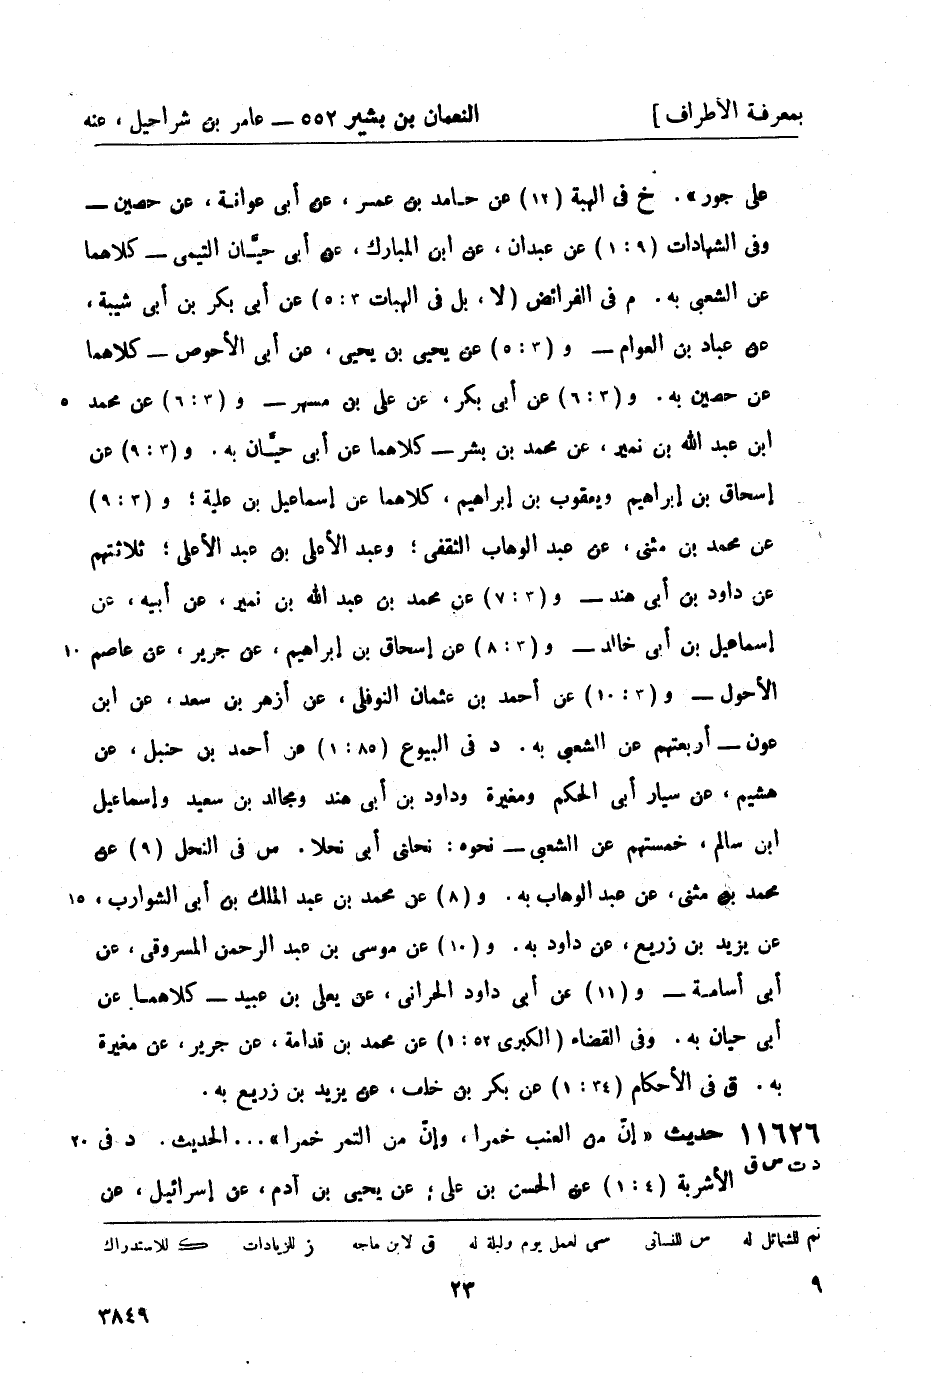 بمعرفة الأطراف] النعمان بن بشير ٥٥٢ ــ عامر بن شراحيل ، عنه
على جور» . خ فى الهبة (١٢) عن حامد بن عمر ، عن أبى عوانة ، عن حصين ــ
وفى الشهادات (٩ : ١) عن عبدان ، عن ابن المبارك ، عن أبى حيَّان التيمى ــ كلاهما
عن الشعبي به . م فى الفرائض (لا ، بل فى الهبات ٣ : ٥) عن أبى بكر بن أبى شيبة ،
عن عباد بن العوام ــ و (٣ : ٥) عن يحيى بن يحيى ، عن أبى الأحوص ــ كلاهما
عن حصين به . و (٣ : ٦) عن أبى بكر ، عن على بن مسهر ــ و (٣ : ٦) عن محمد ٥
ابن عبد الله بن نمير ، عن محمد بن بشر ــ كلاهما عن أبى حيَّان به . و (٣ : ٩) عن
إسحاق بن إبراهيم ويعقوب بن إبراهيم ، كلاهما عن إسماعيل بن علية ؛ و (٣ : ٩)
عن محمد بن مثنى ، عن عبد الوهاب الثقفى ؛ وعبد الأعلى بن عبد الأعلى ؛ ثلاثتهم
عن داود بن أبى هند ــ و (٣ : ٧) عن محمد بن عبد الله بن نمير ، عن أبيه ، عن
إسماعيل بن أبى خالد ــ و (٣ : ٨) عن إسحاق بن إبراهيم ، عن جرير ، عن عاصم ١٠
الأحول ــ و (٣ : ١٠) عن أحمد بن عثمان النوفلى ، عن أزهر بن سعد ، عن ابن
عون ــ أربعتهم عن الشعبي به . د فى البيوع (٨٥ : ١) عن أحمد بن حنبل ، عن
هشيم ، عن سيار أبى الحكم ومغيرة وداود بن أبى هند ومجالد بن سعيد وإسماعيل
ابن سالم ، خمستهم عن الشعبي ــ نحوه : نحلنى أبى نحلا . س فى النحل (٩) عن
محمد بن مثنى ، عن عبد الوهاب به . و (٨) عن محمد بن عبد الملك بن أبى الشوارب ، ١٥
عن يزيد بن زريع ، عن داود به . و (١٠) عن موسى بن عبد الرحمن المسروقى ، عن
أبى أسامة ــ و (١١) عن أبى داود الحرانى ، عن يعلى بن عبيد ــ كلاهما عن
أبى حيان به . وفى القضاء (الكبرى ٥٢ : ١) عن محمد بن قدامة ، عن جرير ، عن مغيرة
به . ق فى الأحكام (٣٤ : ١) عن بكر بن خلف ، عن يزيد بن زريع به .
١١٦٢٦ حديث «إنّ من العنب خمرا ، وإنّ من التمر خمرا» ... الحديث . د فى ٢٠
د ت س ق الأشربة (٤ : ١) عن الحسن بن على ؛ عن يحيى بن آدم ، عن إسرائيل ، عن
تم للشمائل له س للنسائى سى لعمل يوم وليلة له ق لابن ماجه ز للزيادات ك للاستدراك
٩ ٢٣
٣٨٤٩